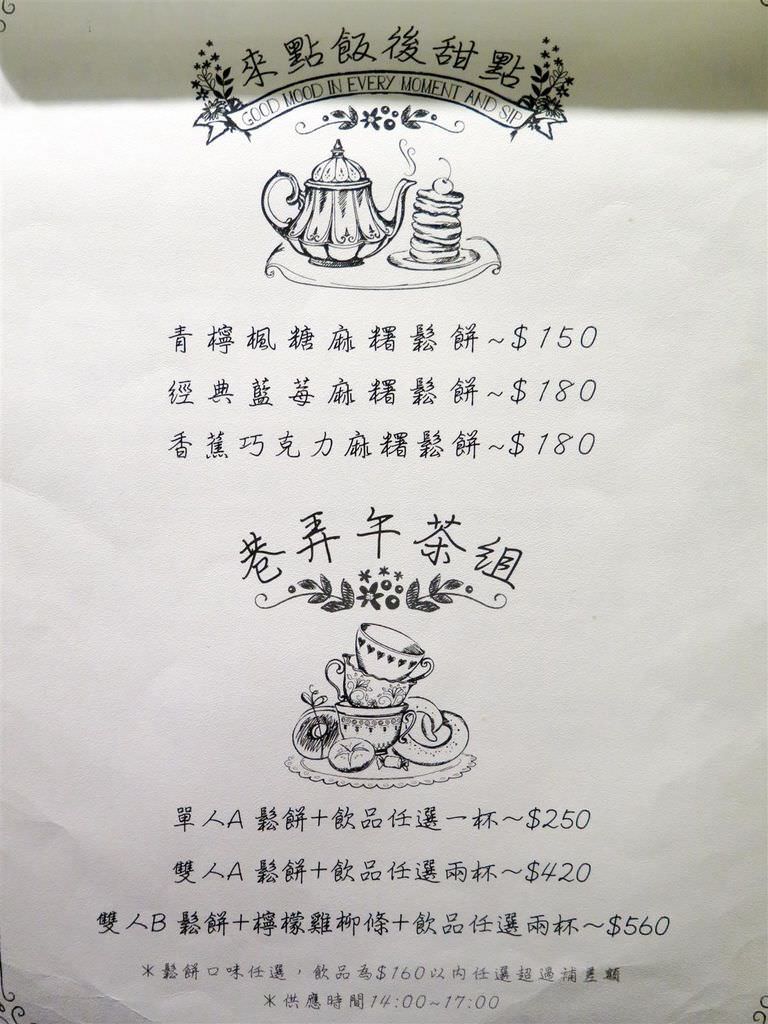 來點飯後甜點
GOOD MOOD IN EVERY MOMENT AND SIP
青檸楓糖麻糬鬆餅~$150
經典藍莓麻糬鬆餅~$180
香蕉巧克力麻糬鬆餅~$180
巷弄午茶組
單人A 鬆餅+飲品任選一杯~$250
雙人A 鬆餅+飲品任選兩杯~$420
雙人B 鬆餅+檸檬雞柳條+飲品任選兩杯~$560
*鬆餅口味任選，飲品為$160以內任選超過補差額
*供應時間14:00~17:00